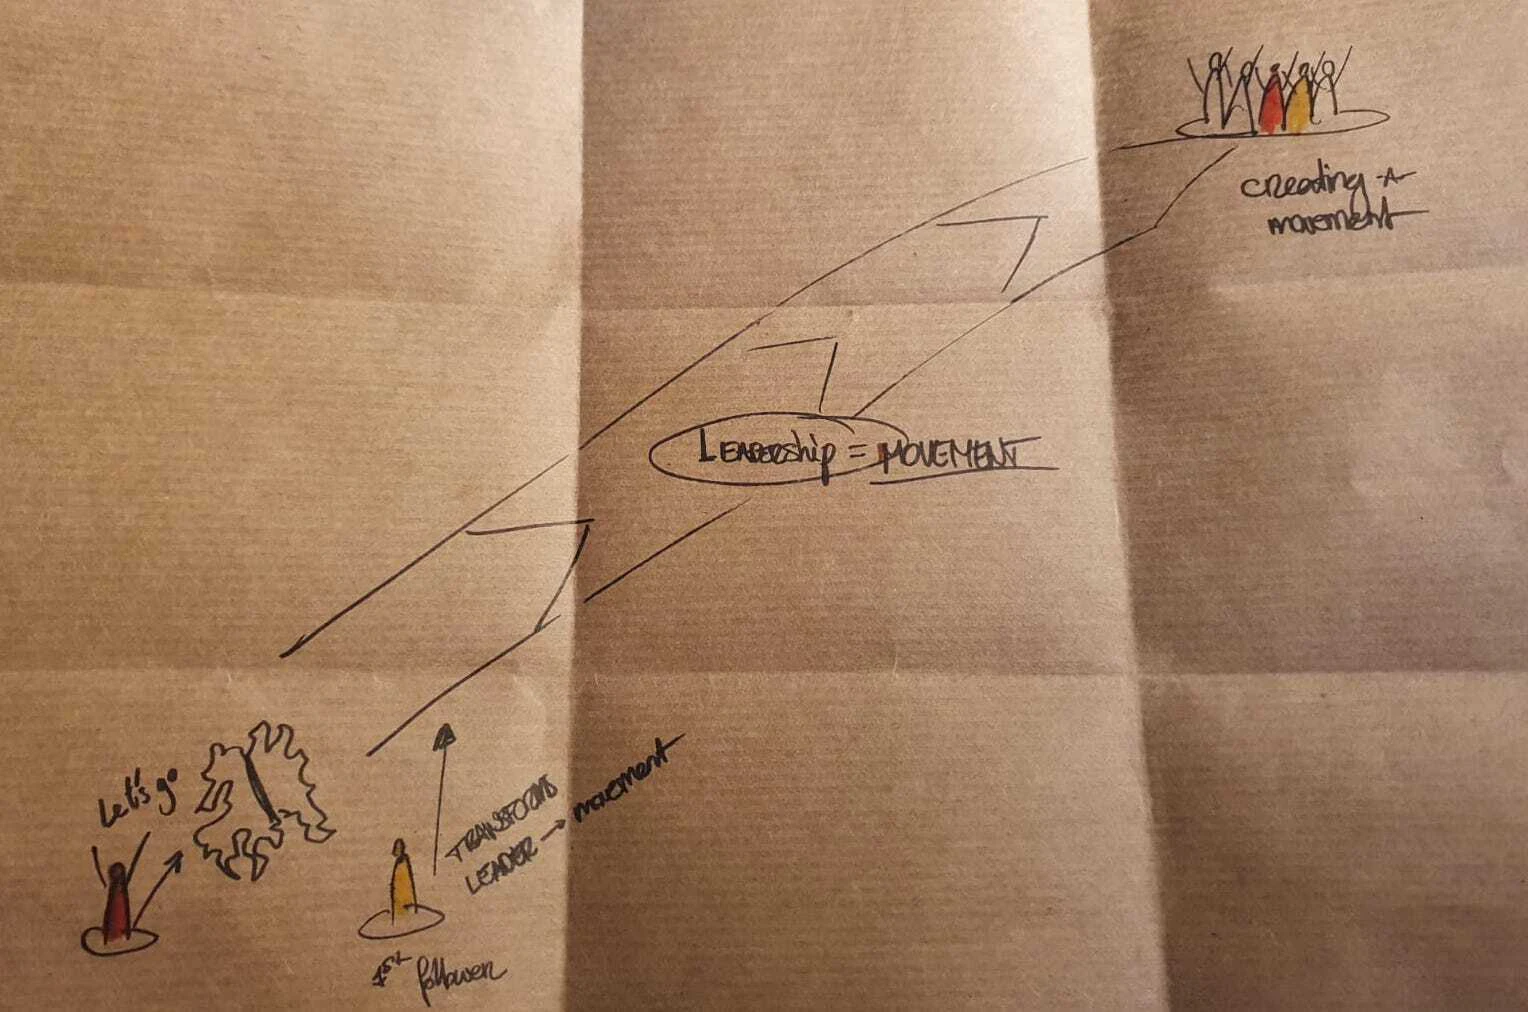 creating A
movement
Leadership = MOVEMENT
Let's go
TRANSFORMS
LEADER → movement
1st
follower